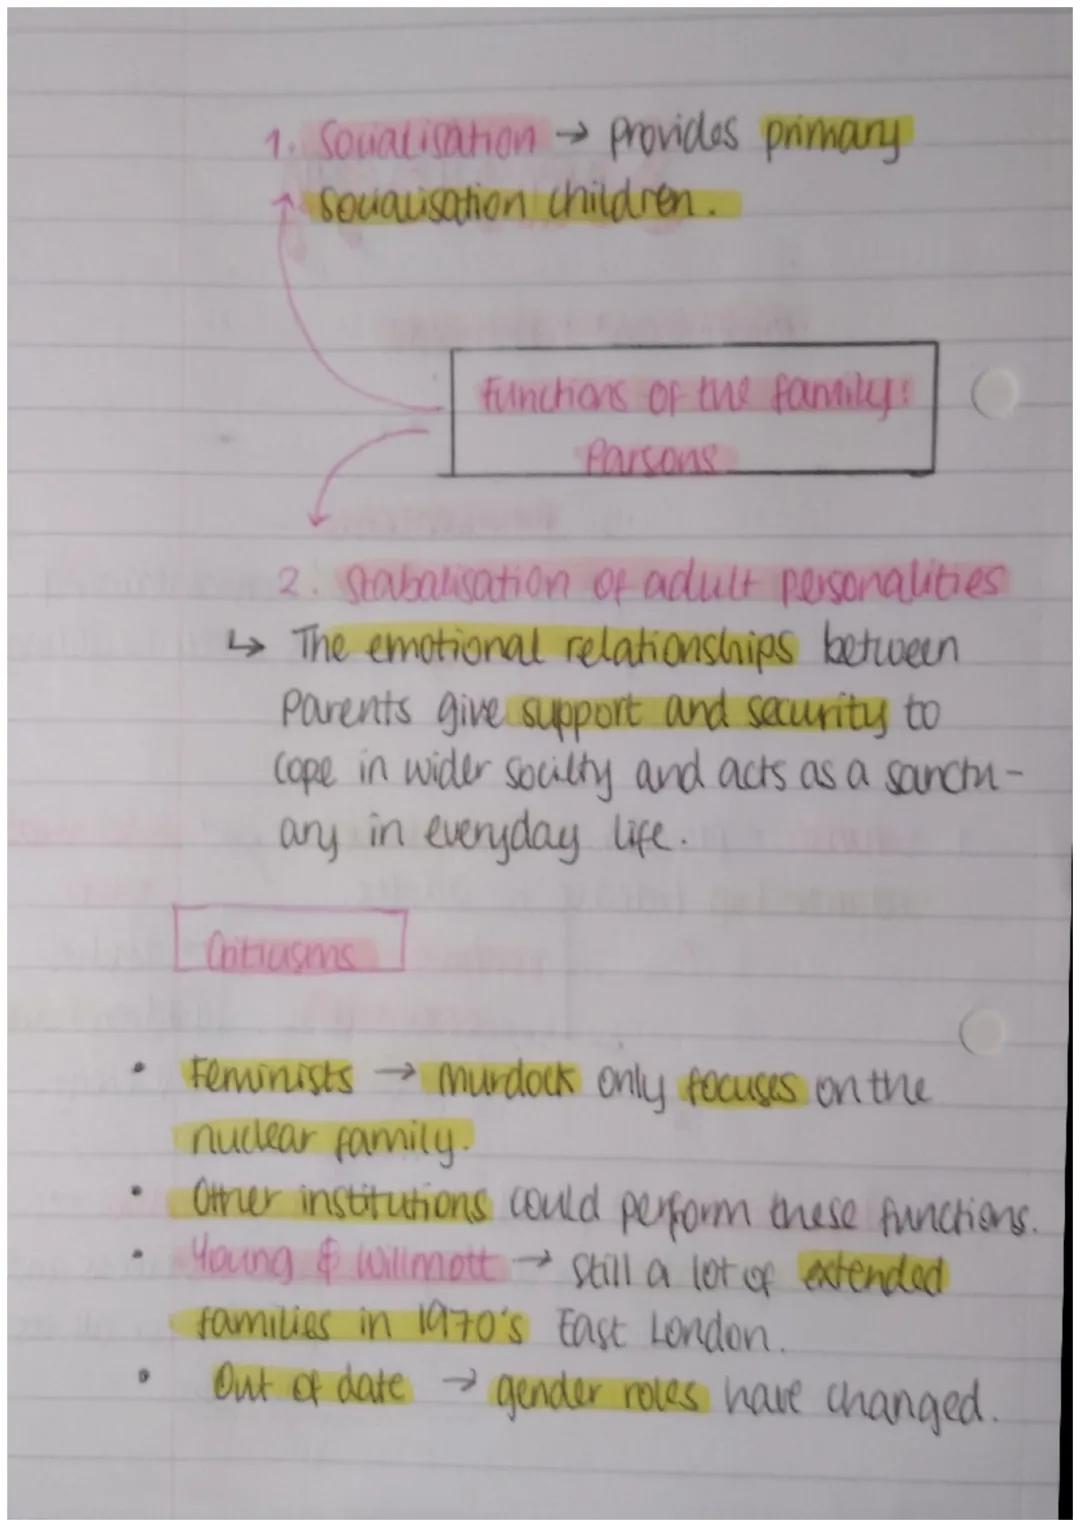 1. Socialisation → provides primary
socialisation children.
Functions of the family:
Parsons
2. Stabalisation of adult personalities
↳ The emotional relationships between
Parents give support and security to
cope in wider society and acts as a sanctu-
ary in everyday life.
Critiasms
• Feminists → Murdock only focuses on the
nuclear family.
• Other institutions could perform these functions.
• Young & Willmott → still a lot of extended
families in 1970's East London.
• Out of date → gender roles have changed.